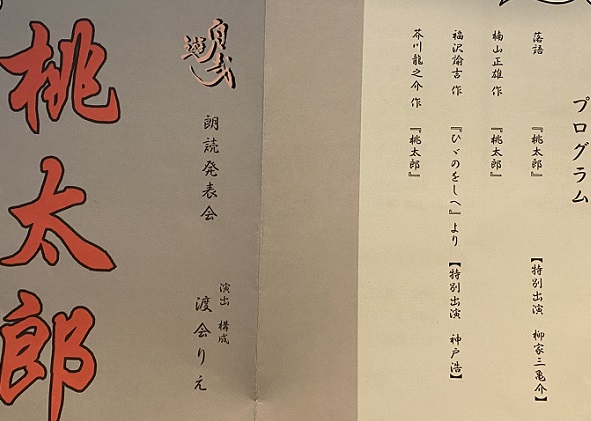 プログラム
落語 『桃太郎』 【特別出演 柳家三亀介】
楠山正雄 作 『桃太郎』
福沢諭吉 作 『ひゞのをしへ』より 【特別出演 神戸浩】
芥川龍之介 作 『桃太郎』
朗読発表会
演出 構成
渡会りえ
桃太郎